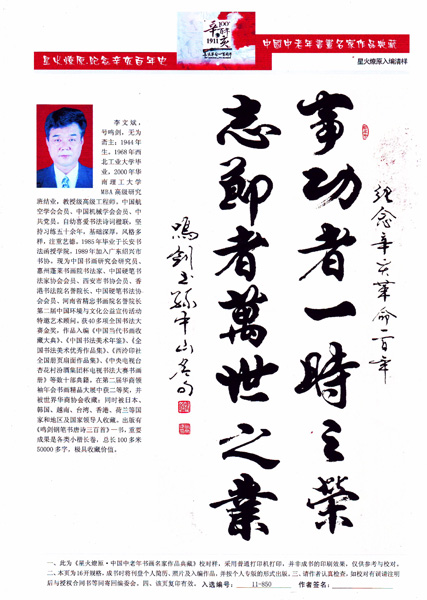 100
辛百年亥
1911
星火燎原.纪念辛亥百年史
中國中老年書畫名家作品典藏
星火燎原入编清样
李文斌，
号鸣剑，无为
斋主；1944年
生。1968年西
北工业大学毕
业。2000年华
南理工大学
MBA高级研究
班结业，教授级高级工程师。中国航
空学会会员、中国机械学会会员，中
共党员。自幼喜爱书法诗词楹联，坚
持习练五十余年，基础深厚，风格多
样，注重艺德。1985年毕业于长安书
法函授学院，1989年加入广东绍兴市
书协，现为中国书画研究会研究员、
惠州蓬莱书画院书法家、中国硬笔书
法家协会会员、西安市书协会员、香
港书法院名誉院长、中国硬笔书法协
会会员、河南省精忠书画院名誉院长
第二届中国环境与文化公益宣传活动
特邀艺术顾问。获40多项全国书法大
赛金奖。作品入编《中国当代书画收
藏大典》、《中国书法美术年鉴》、《全
国书法美术优秀作品集》、《西泠印社
全国册页扇面作品集》、《中央电视台
杏花村汾酒集团杯电视书法大赛书画
册》等数十部典籍。在第二届华商领
袖年会书画精品大展中获二等奖，并
被世界华商协会收藏；同时被日本、
韩国、越南、台湾、香港、荷兰等国
家和地区及国家领导人收藏。出版有
《鸣剑钢笔书唐诗三百首》一书，重要
成果是各类小楷长卷，总长100多米
50000多字，极具收藏价值。
纪念辛亥革命一百年
事功者一时之荣
志節者萬世之業
鸣剑书孙中山名句
一、此为《星火燎原·中国中老年书画名家作品典藏》校对样，采用普通打印机打印，并非成书的印刷效果，仅供参考与校对。
二、本页为16开规格，成书时将刊登个人简历、照片及入编作品，并按个人专版的形式出版。三、请作者认真检查，如校对有误请注明
后与授权合同书等同寄回编委会。四、该页复印有效。 入选编号：11-850 作者签名：